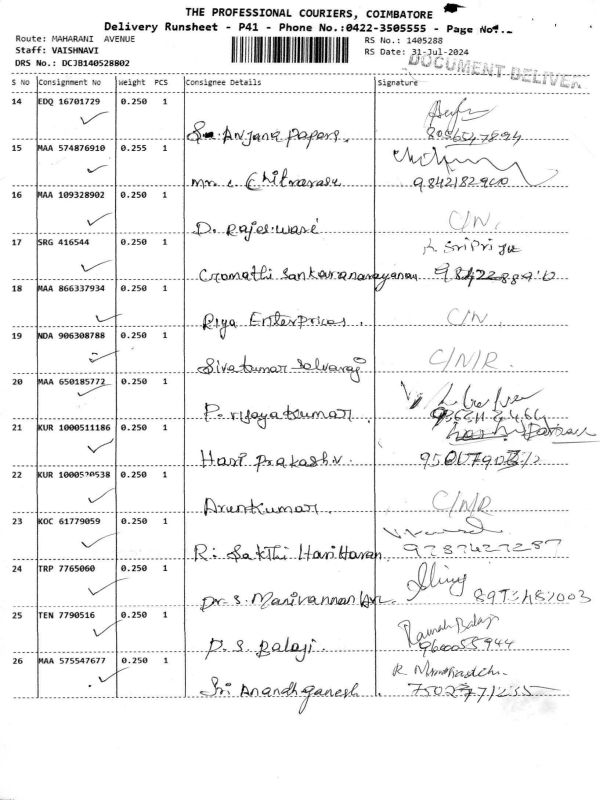 THE PROFESSIONAL COURIERS, COIMBATORE
Delivery Runsheet - P41 - Phone No.:0422-3505555 - Page No
Route: MAHARANI AVENUE
RS No.: 1405288
Staff: VAISHNAVI
RS Date: 31-Jul-2024
DRS No.: DCJB140528802
DOCUMENT DELIVER
S No Consignment No Weight PCS Consignee Details Signature
14 EDQ 16701729 0.250 1
Anjana papers.
15 MAA 574876910 0.255 1
9842182900
16 MAA 109328902 0.250 1
D. Rajeswari C/N.
17 SRG 416544 0.250 1
K Sripriya
Gomathi Sankaranarayanan
18 MAA 866337934 0.250 1
Riya Enterprices. C/N.
19 NDA 906308788 0.250 1
Sivakumar Selvaraj C/N/R.
20 MAA 650185772 0.250 1
P. vijayakumar.
21 KUR 1000511186 0.250 1
Hari prakash v.
22 KUR 1000520538 0.250 1
Arunkumar. C/N/R
23 KOC 61779059 0.250 1
R. Sakthi Hariharan 9787427287
24 TRP 7765060 0.250 1
Dr. S. Manivannan
25 TEN 7790516 0.250 1
Ramesh Balaji
P. S. Balaji. 9600055944
26 MAA 575547677 0.250 1
Sri Anandhganesh 7502771235